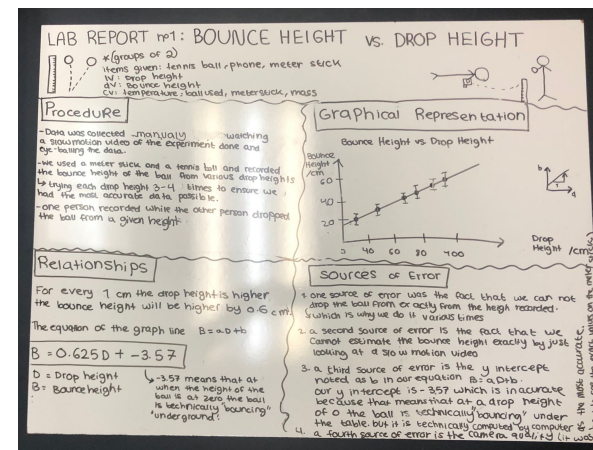 LAB REPORT nº1: BOUNCE HEIGHT vs. DROP HEIGHT
*(groups of 2)
items given: tennis ball, phone, meter stick
IV: Drop height
dV: Bounce height
CV: temperature, ball used, meterstick, mass
Procedure
-Data was collected manualy watching
a slowmotion video of the experiment done and
eye-balling the data.
-we used a meter stick and a tennis ball and recorded
the bounce height of the ball from various drop heights
↳ trying each drop height 3-4 times to ensure we
had the most accurate data possible.
-one person recorded while the other person dropped
the ball from a given height.
Graphical Representation
Bounce Height vs Drop Height
Bounce
Height
/cm
60
40
20
40 60 80 100
Drop
Height /cm
b
1
d
Relationships
For every 1 cm the drop height is higher
the bounce height will be higher by 0.6 cm.
The equation of the graph line B=aD+b
B = 0.625D + -3.57
D = Drop height
B = Bounce height
↳ -3.57 means that at
when the height of the
ball is at zero the ball
is technically "bouncing"
"underground".
Sources of Error
1. one source of error was the fact that we can not
drop the ball from exactly from the heigh recorded.
↳ which is why we do it various times
2. a second source of error is the fact that we
cannot estimate the bounce height exactly by just
looking at a slow motion video
3. a third source of error is the y intercept
noted as b in our equation B=aD+b.
our y intercept is -3.57 which is inacurate
because that means that at a drop height
of 0 the ball is technically "bouncing" under
the table. but it is technically computed by computer
4. a fourth source of error is the camera quality (it was
the most accurate,